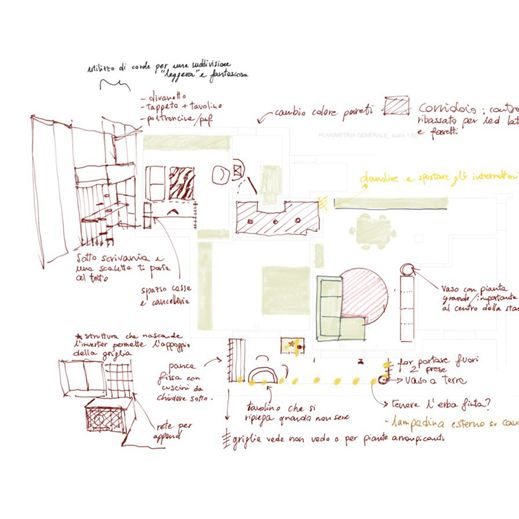 utilizzo di corde per una suddivisione
"leggera" e fantasiosa
- divanetto
- tappeto + tavolino
- poltroncina/puf
cambio colore pareti
corridoio: contro
ribassato per led lat
e faretti
PLANIMETRIA GENERALE, scala 1:50
chiudere e spostare gli interruttori
sotto scrivania e
una scaletta ti porta
al letto
spazio casse
e cancelleria
vaso con pianta
grande/importante
al centro della stan
* struttura che nasconde
l'inverter permette l'appoggio
della griglia
rete per
append
panca
fissa con
cuscini da
chiudere sotto.
tavolino che si
ripiega quando non serve
griglia vedo non vedo o per piante arrampicanti
far portare fuori
2 prese
vaso a terra
tenere l'erba finta?
- lampadina esterno su cavo